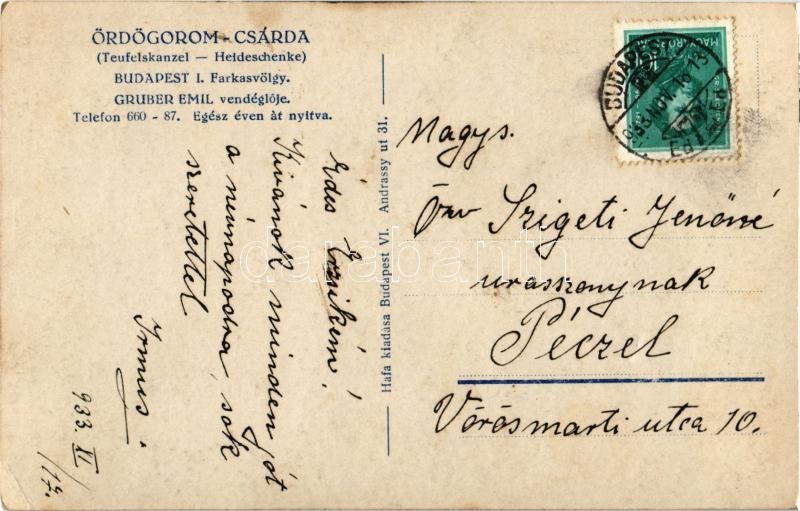 ÖRDÖGOROM-CSÁRDA
(Teufelskanzel — Heideschenke)
BUDAPEST I. Farkasvölgy.
GRUBER EMIL vendéglője.
Telefon 660 - 87. Egész éven át nyitva.
Édes Erzsikém!
Kívánok minden jót
a névnapodra, sok
szeretettel
Irmus.
933. XI/17.
Hafa kiadása Budapest VI. Andrassy ut 31.
BUDAPEST
MAGYARORSZÁG
Nagys.
Özv Szigeti Jenőné
urasszonynak
Péczel
Vörösmarti utca 10.
darabanth